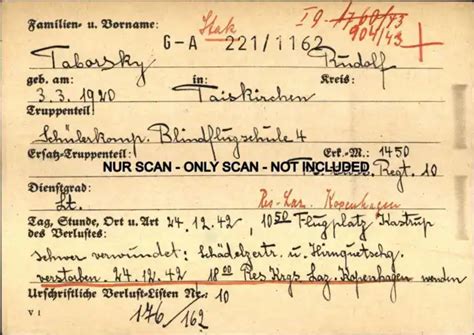 Familien- u. Vorname: Stak I g 1760/43
G-A 221/1162 904/43
Taborsky Rudolf
geb. am: in: Kreis:
3.3.1920 Taiskirchen
Truppenteil:
Schülerkomp. Blindflugschule 4
Ersatz-Truppenteil: Erk.-M.: 1450
NUR SCAN - ONLY SCAN - NOT INCLUDED
Regt. 10
Dienstgrad:
Lt. Res. Laz. Kopenhagen
Tag, Stunde, Ort u. Art 24.12.42, 10 50 Flugplatz Kastrup
des Verlustes:
Schwer verwundet: Schädelzertr. u. Hirnquetschg.
verstorben. 24.12.42 18 00 Res. Krgs. Laz. Kopenhagen
Urschriftliche Verlust-Listen Nr. 10
V I 176/162